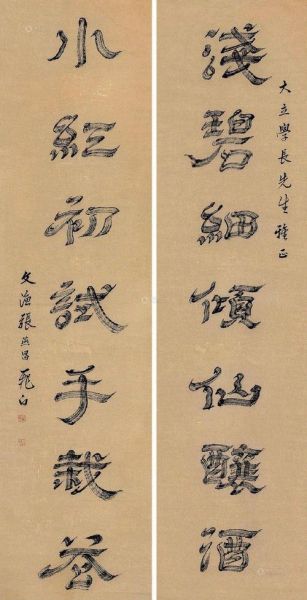 大立學長先生雅正
淺碧細傾仙釀酒
小紅初試手栽花
文漁張燕昌飛白